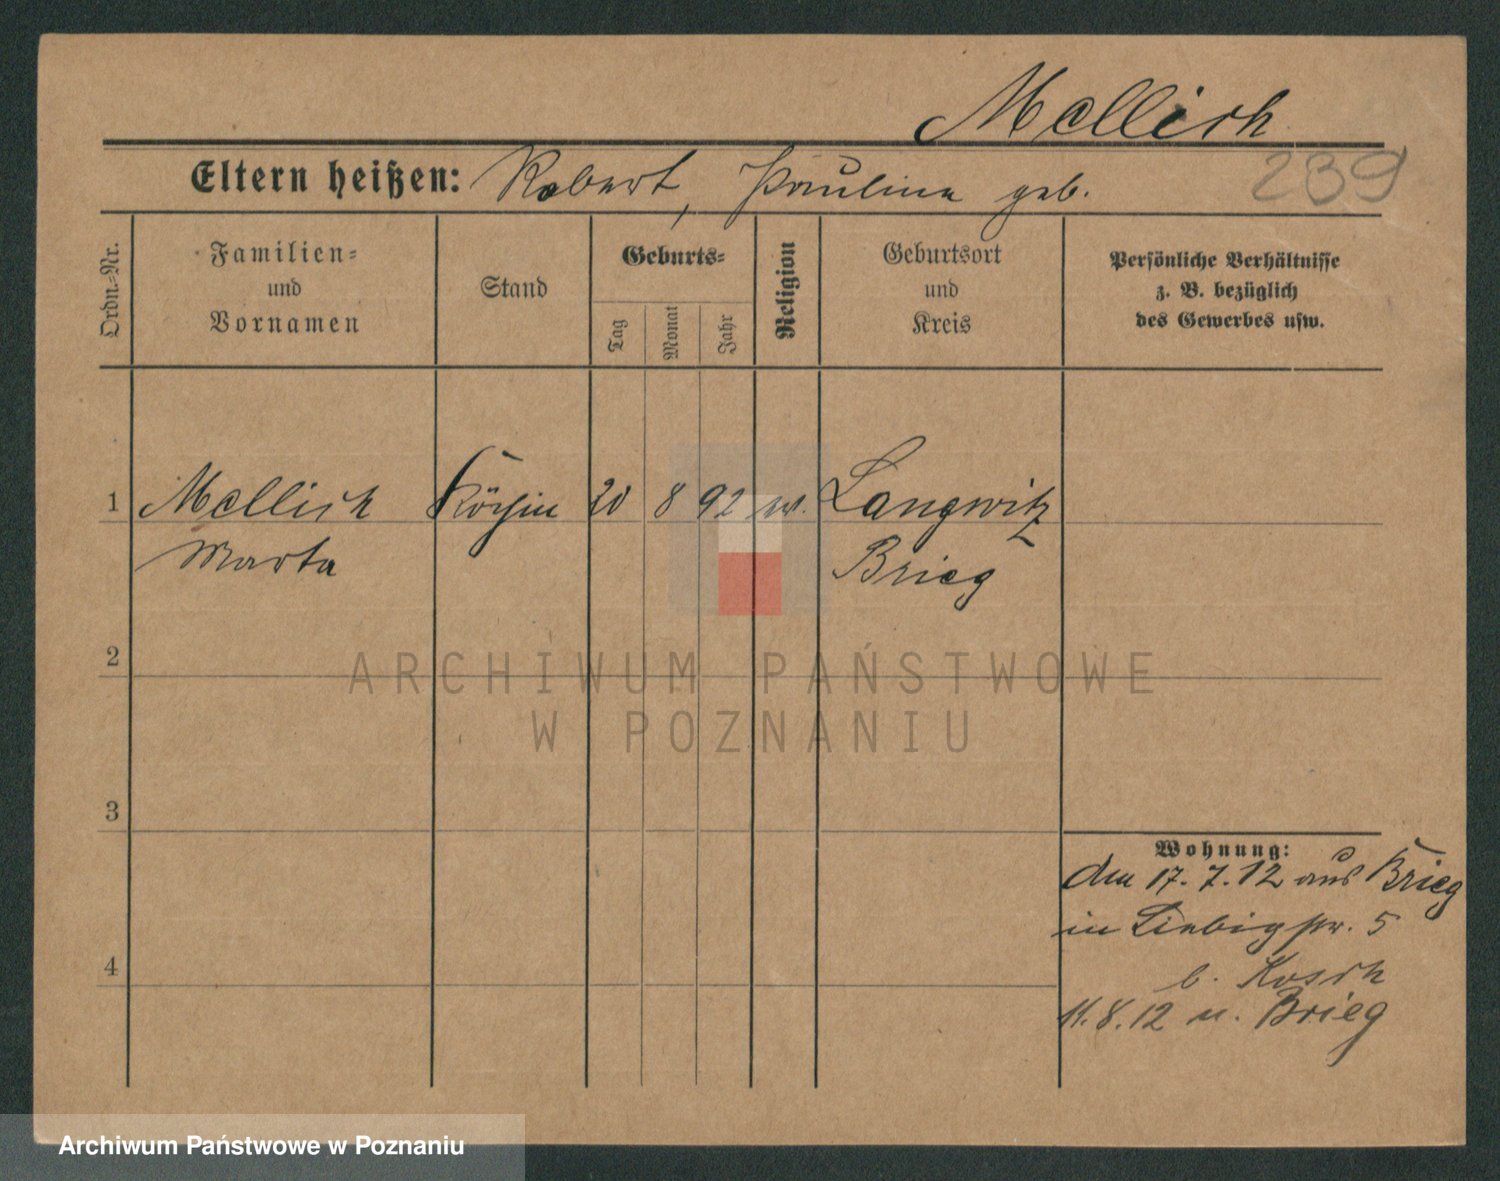 Mellich
239
Eltern heißen: Robert, Pauline geb.
Ordn.-Nr.
Familien-
und
Vornamen
Stand
Geburts-
Tag
Monat
Jahr
Religion
Geburtsort
und
Kreis
Persönliche Verhältnisse
z. B. bezüglich
des Gewerbes usw.
1 Mellich Köchin 20 8 92 ev. Langwitz
Marta Brieg
2
3
4
Wohnung:
den 17.7.12 aus Brieg
in Liebigstr. 5
b. Kosch
11.8.12 n. Brieg
ARCHIWUM PAŃSTWOWE
W POZNANIU
Archiwum Państwowe w Poznaniu